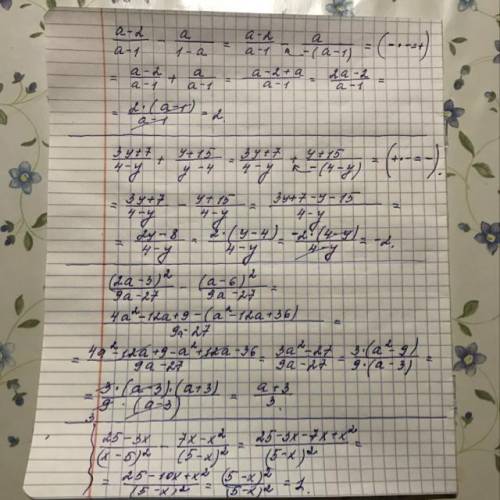 (a-2)/(a-1) - a/(1-a) = (a-2)/(a-1) - a/(-(a-1)) = (-·-=+)
= (a-2)/(a-1) + a/(a-1) = (a-2+a)/(a-1) = (2a-2)/(a-1) =
= 2·(a-1)/(a-1) = 2.
(3y+7)/(4-y) + (y+15)/(y-4) = (3y+7)/(4-y) + (y+15)/(-(4-y)) = (+·-=-).
= (3y+7)/(4-y) - (y+15)/(4-y) = (3y+7-y-15)/(4-y) =
= (2y-8)/(4-y) = 2·(y-4)/(4-y) = -2·(4-y)/(4-y) = -2.
(2a-3)²/(9a-27) - (a-6)²/(9a-27) =
(4a²-12a+9-(a²-12a+36))/(9a-27) =
= (4a²-12a+9-a²+12a-36)/(9a-27) = (3a²-27)/(9a-27) = 3·(a²-9)/(9·(a-3)) =
= 3·(a-3)·(a+3)/(9·(a-3)) = (a+3)/3.
3
(25-3x)/(x-5)² - (7x-x²)/(5-x)² = (25-3x-7x+x²)/(5-x)² =
= (25-10x+x²)/(5-x)² = (5-x)²/(5-x)² = 1.